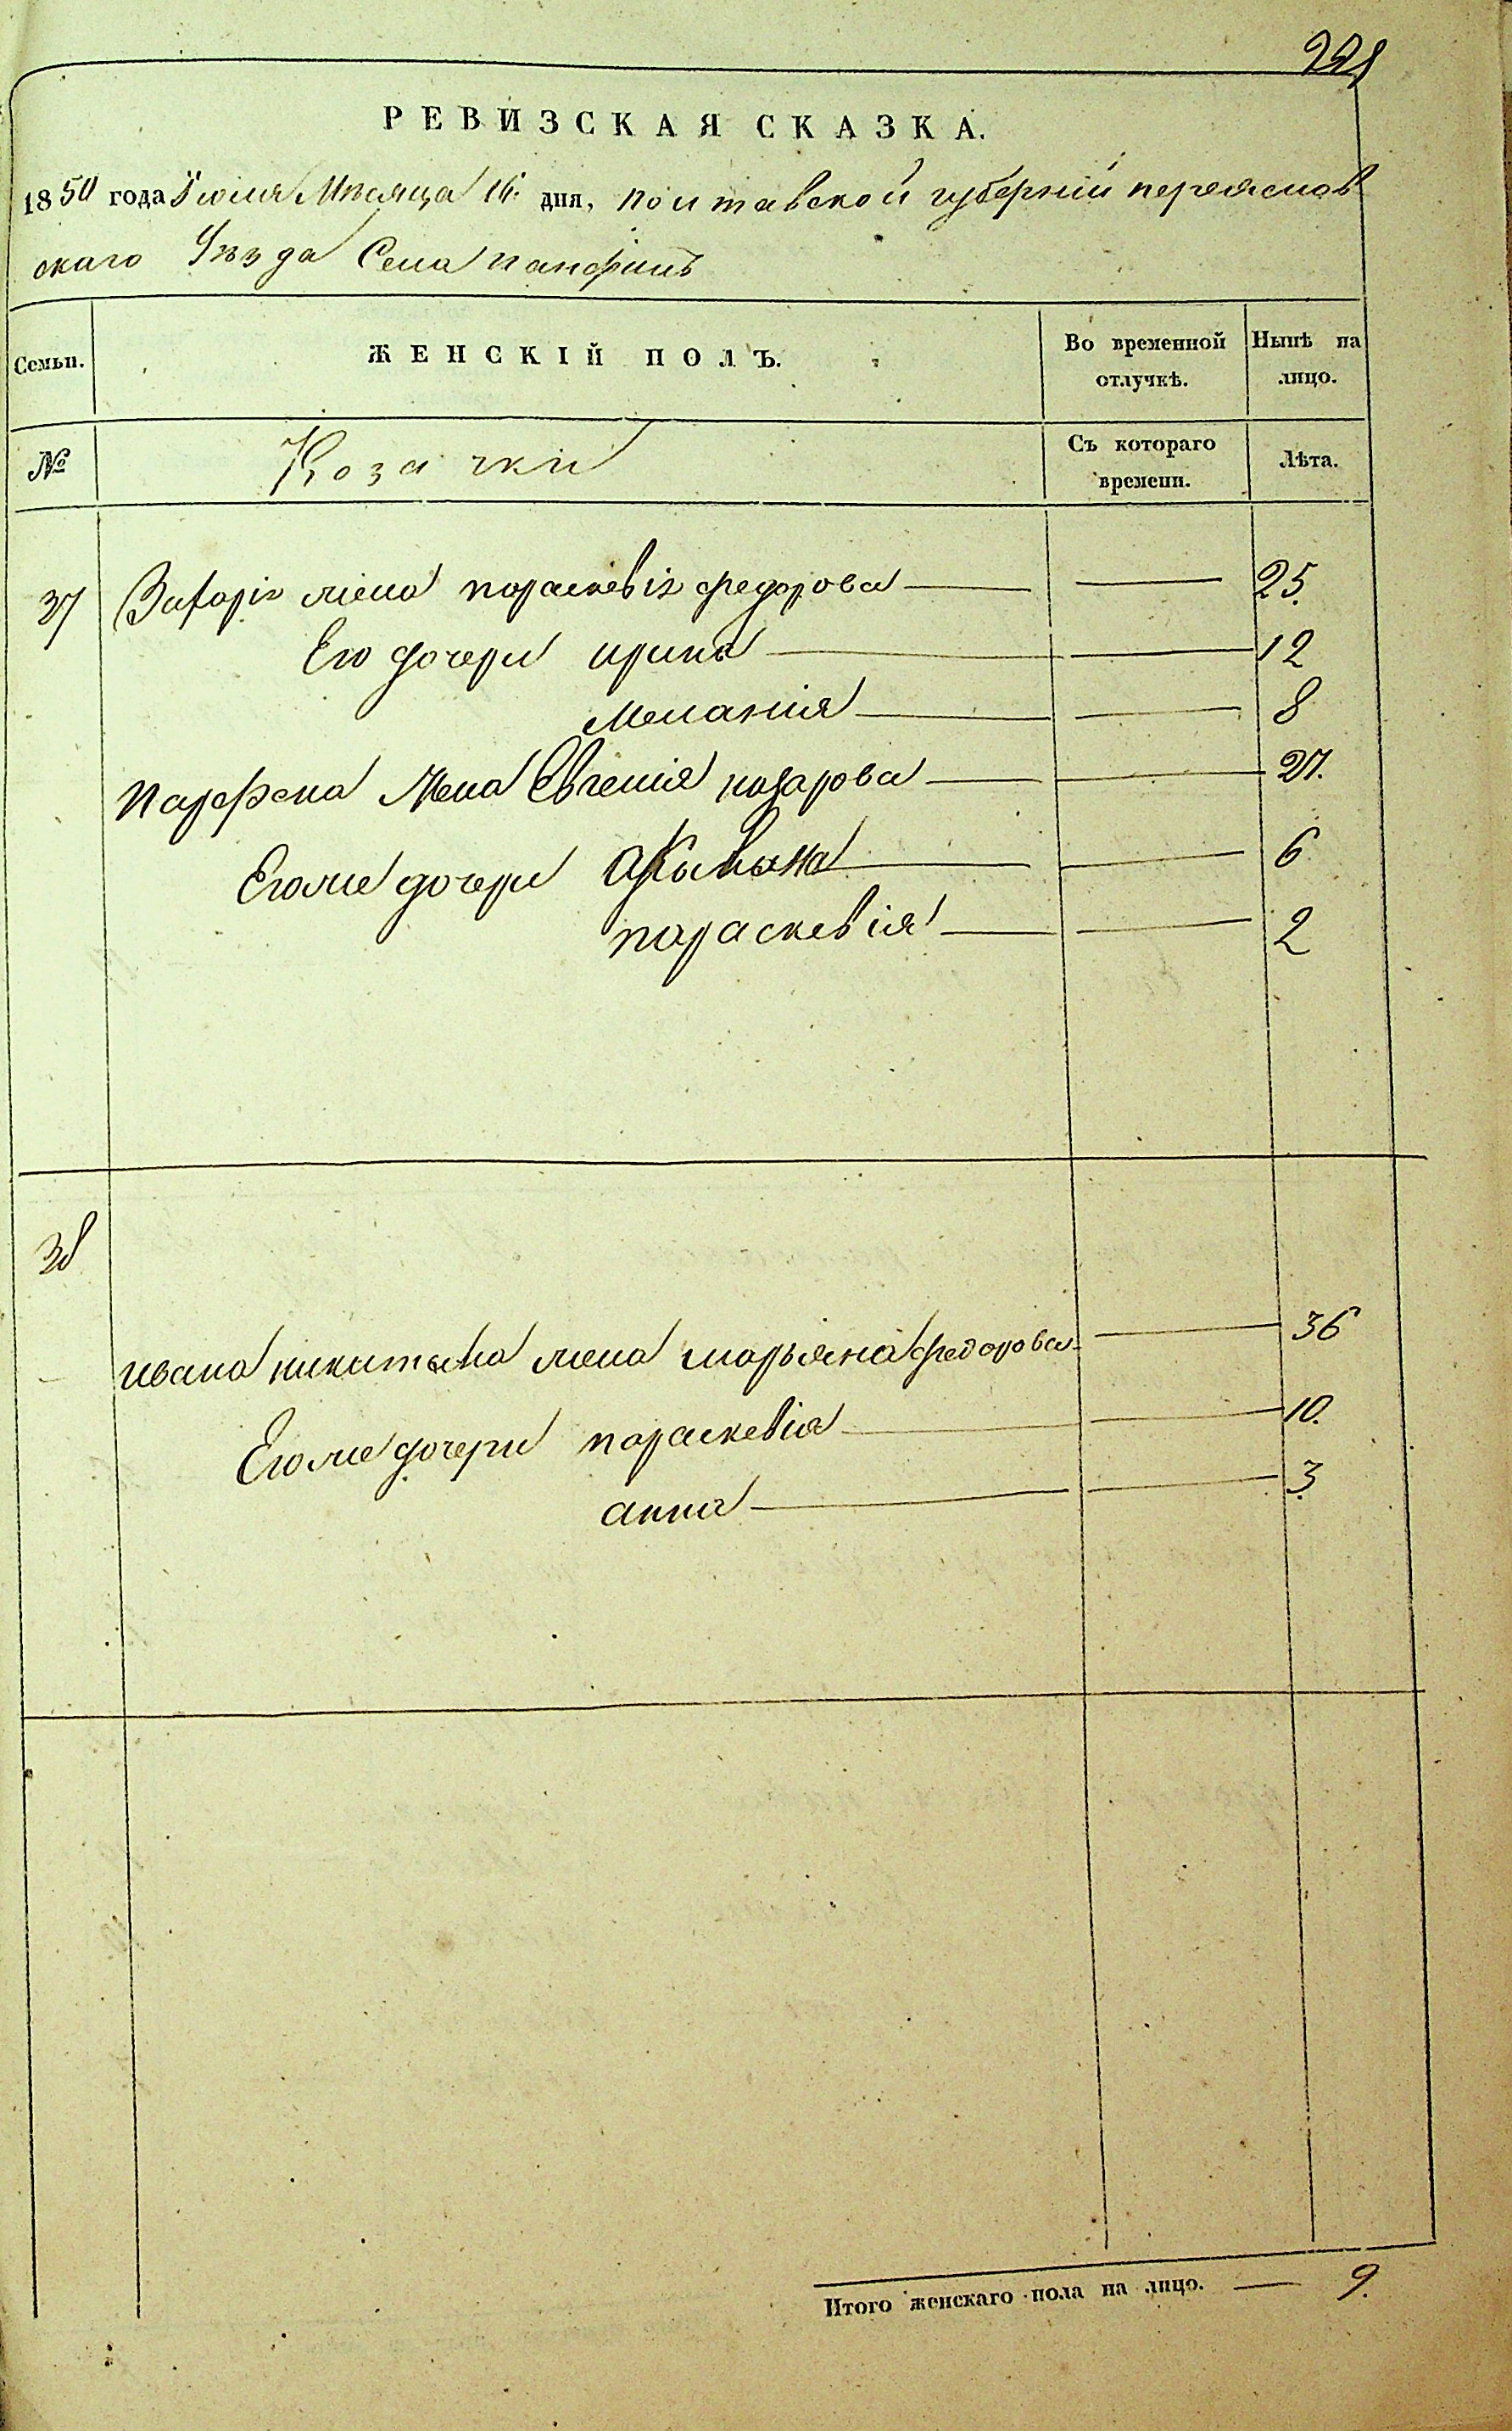 221
РЕВИЗСКАЯ СКАЗКА.
1850 года Іюля Мѣсяца 16 дня, полтавской губерніи переяслов
скаго Уѣзда Села панфилъ
Семьи. ЖЕНСКІЙ ПОЛЪ. Во временной отлучкѣ. Нынѣ на лицо.
№ Козачки Съ котораго времени. Лѣта.
37 Захарія жена параскевія федорова — — 25.
Его дочери ирина — — 12
Меланія — — 8
Парфена Жена Евгенія назарова — — 27.
Егоже дочери — — 6
параскевія — — 2
38
ивана никитина жена марьяна федорова — 36
Егоже дочери параскевія — — 10.
анна — — 3
Итого женскаго пола на лицо. — 9.